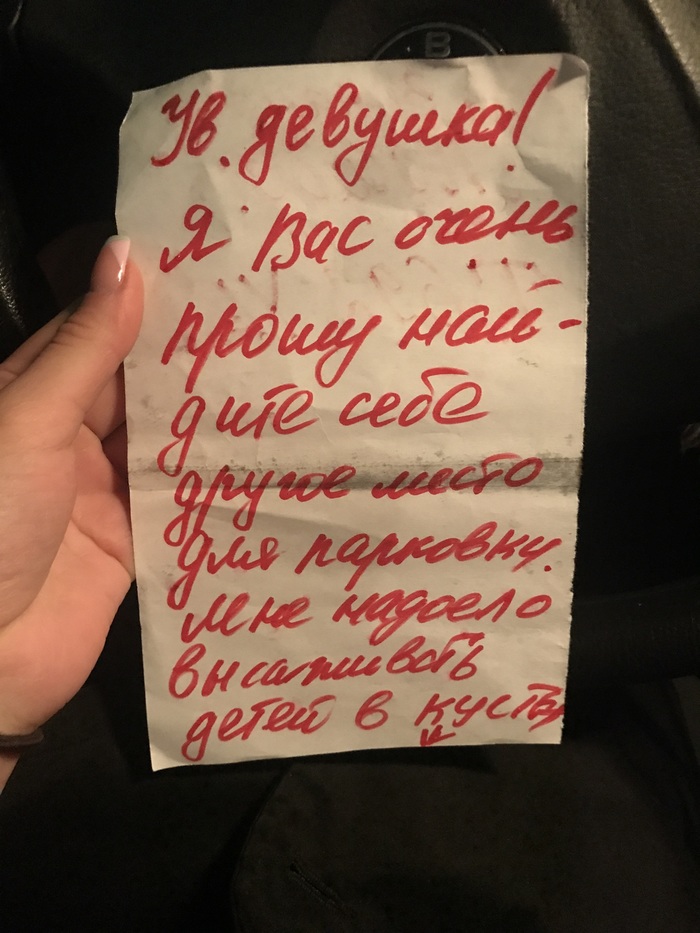 В
Ув. девушка!
Я Вас очень
прошу най-
дите себе
другое место
для парковки.
Мне надоело
высаживать
детей в кусты